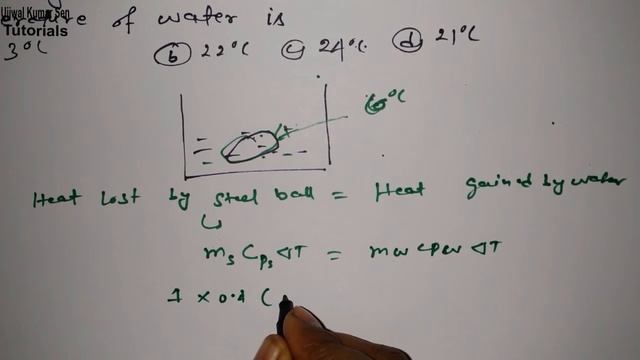 Ujjwal Kumar Sen
Tutorials
erature of water is
3°C (b) 22°C (c) 24°C (d) 21°C
60°C
Heat lost by steel ball = Heat gained by water
ms Cps ΔT = mw cpw ΔT
1 × 0.4 (